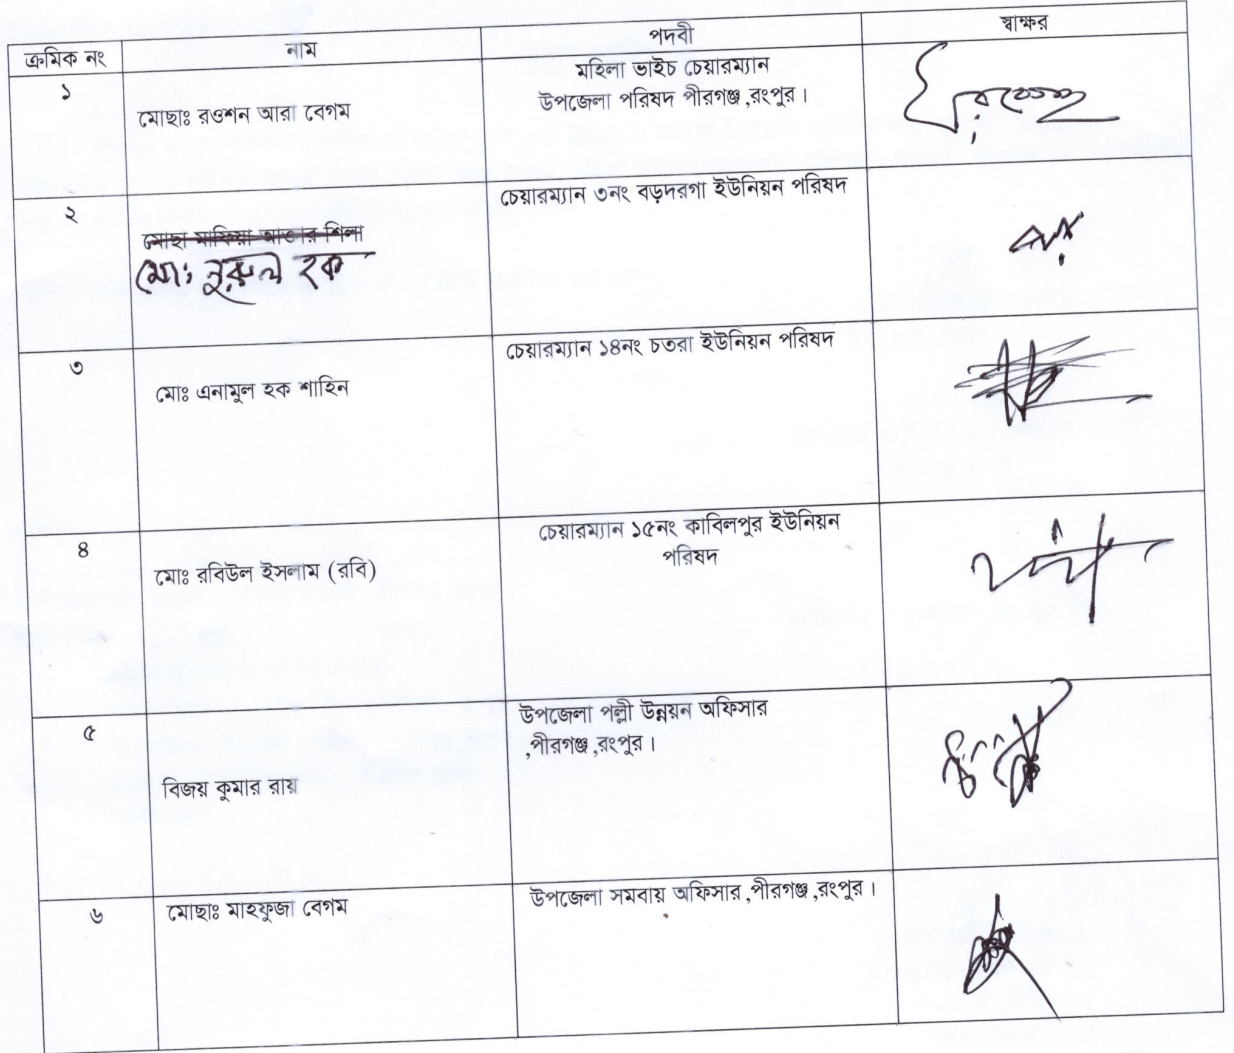 ক্রমিক নং নাম পদবী স্বাক্ষর
১ মোছাঃ রওশন আরা বেগম মহিলা ভাইচ চেয়ারম্যান
উপজেলা পরিষদ পীরগঞ্জ,রংপুর।
২ চেয়ারম্যান ৩নং বড়দরগা ইউনিয়ন পরিষদ
মোছা মাফিয়া আক্তার শিলা
মোঃ নুরুল হক
৩ মোঃ এনামুল হক শাহিন চেয়ারম্যান ১৪নং চতরা ইউনিয়ন পরিষদ
৪ মোঃ রবিউল ইসলাম (রবি) চেয়ারম্যান ১৫নং কাবিলপুর ইউনিয়ন
পরিষদ
৫ বিজয় কুমার রায় উপজেলা পল্লী উন্নয়ন অফিসার
,পীরগঞ্জ,রংপুর।
৬ মোছাঃ মাহফুজা বেগম উপজেলা সমবায় অফিসার,পীরগঞ্জ,রংপুর।